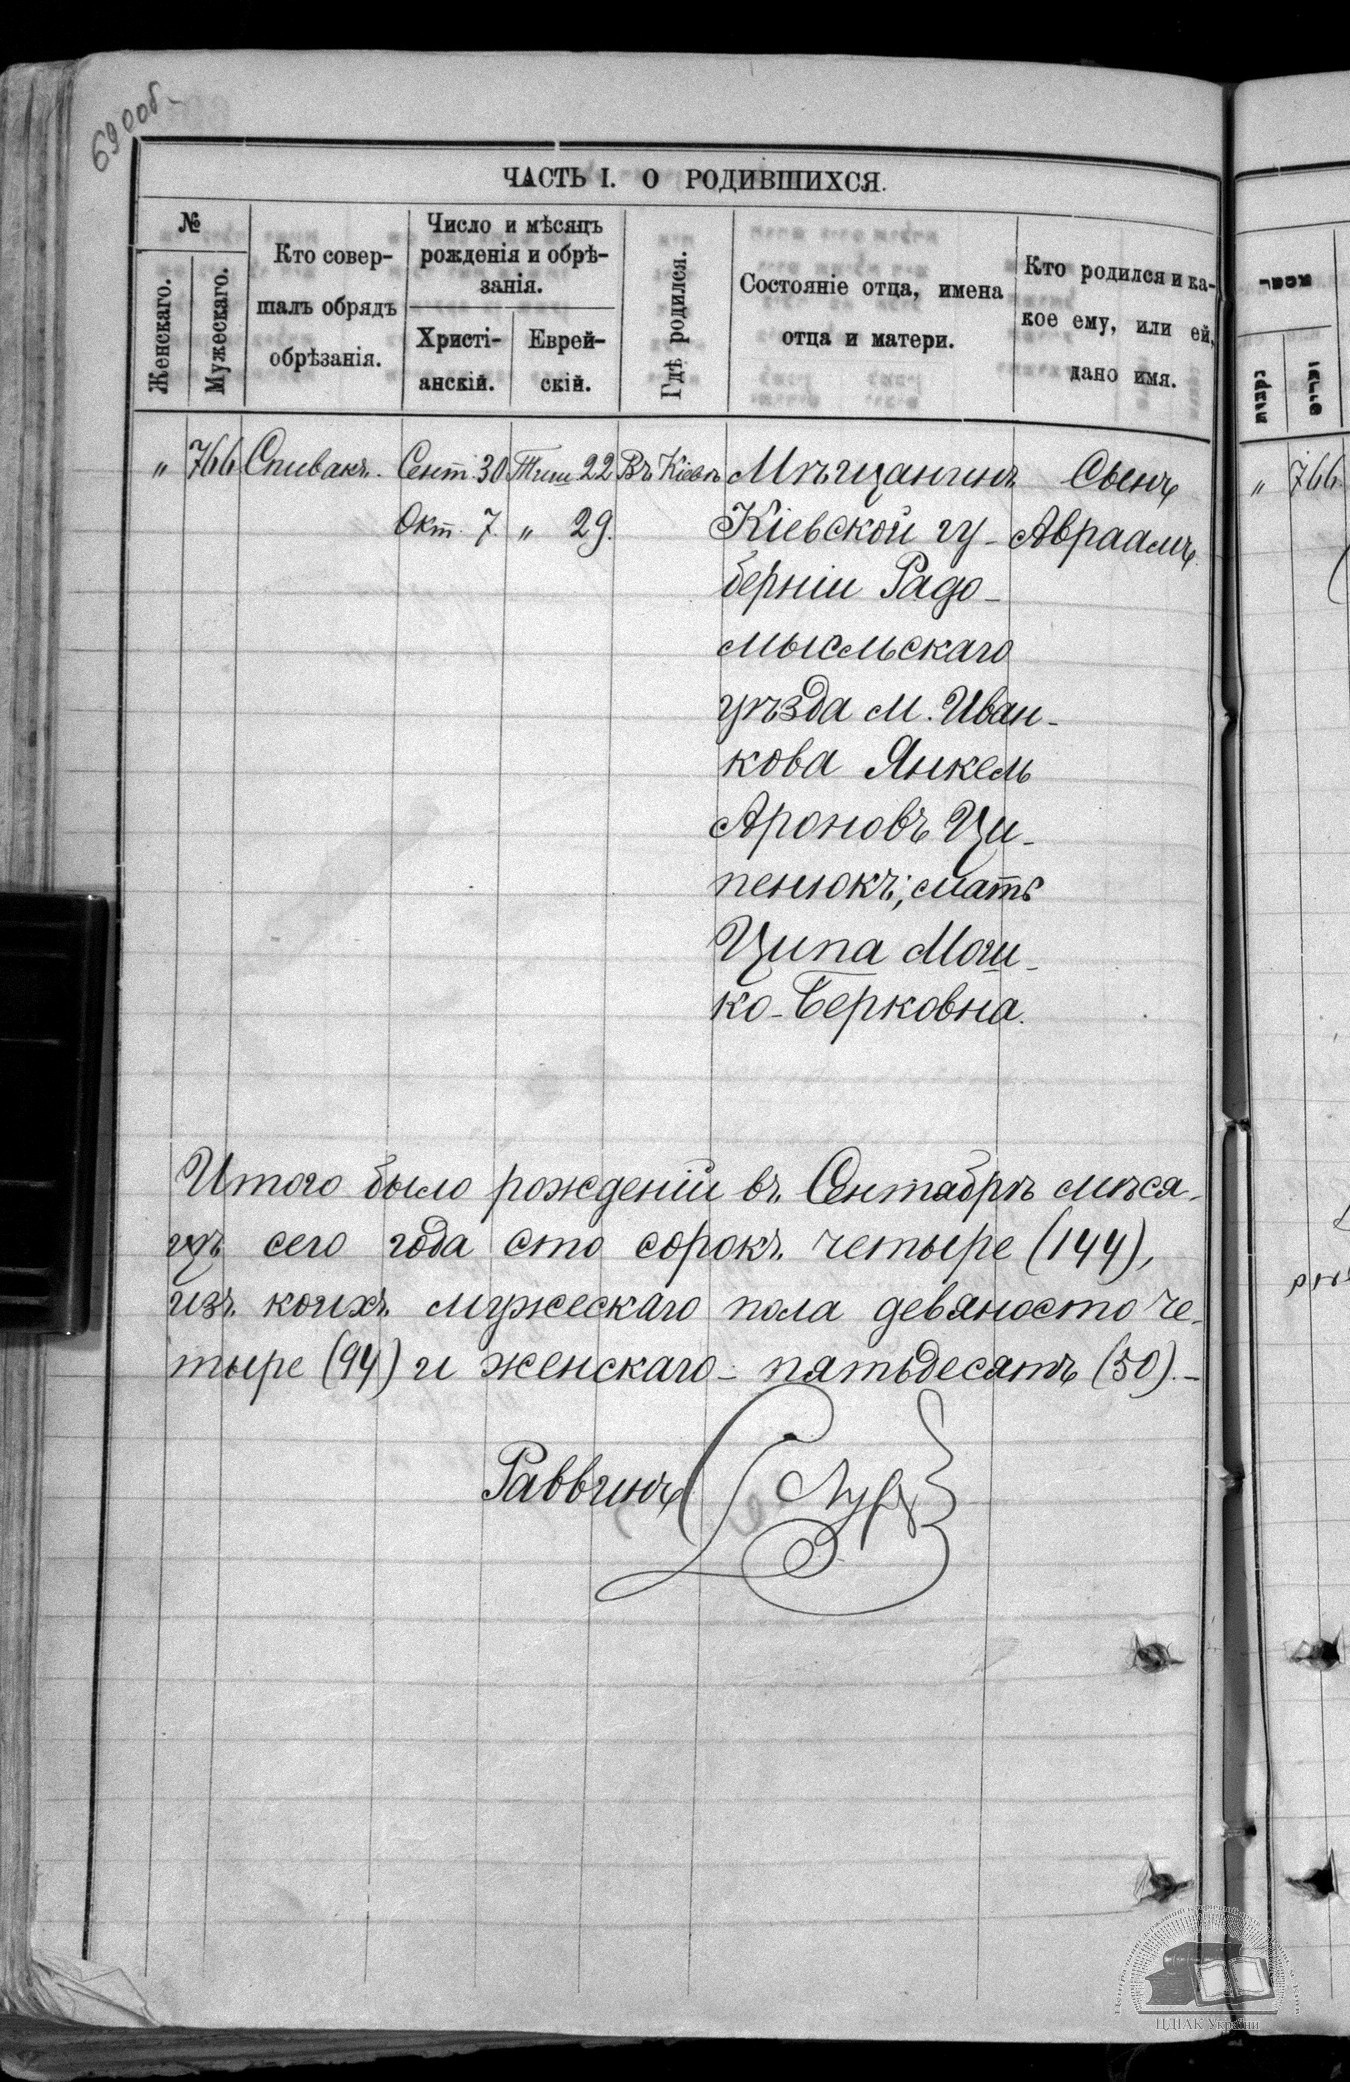 690об.
ЧАСТЬ I. О РОДИВШИХСЯ.
№
Женскаго.
Мужескаго.
Кто совер-
шалъ обрядъ
обрѣзанія.
Число и мѣсяцъ
рожденія и обрѣ-
занія.
Христі-
анскій.
Еврей-
скій.
Гдѣ родился.
Состояніе отца, имена
отца и матери.
Кто родился и ка-
кое ему, или ей,
дано имя.
" 766 Спивакъ. Сент. 30 Тиш 22 Въ Кіевѣ Мѣщанинъ Сынъ
Окт. 7. " 29. Кіевской гу- Авраамъ.
берніи Радо-
мысльскаго
уѣзда м. Иван-
кова Янкель
Ароновъ Ци-
пенюкъ; мать
Ципа Мош-
ко-Берковна.
Итого было рожденій въ Сентябрѣ мѣся-
цѣ сего года сто сорокъ четыре (144),
изъ коихъ мужескаго пола девяносто че-
тыре (94) и женскаго - пятьдесятъ (50). -
Раввинъ
זכרים
נקבות
" 766
ЦДІАК України